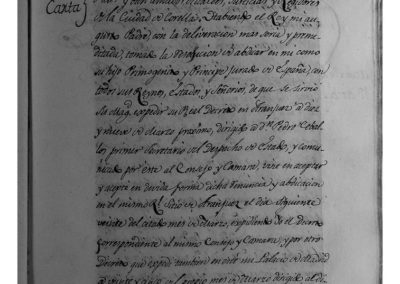 Carta
de la Ciudad de Corella. Habiendo el Rey mi au-
gusto Padre, con la deliveracion mas seria y preme-
ditada, tomado la resolucion de abdicar en mi como
su hijo Primogenito y Principe jurado de España, con
todos sus Reynos, Estados, y Señorios, de que se sirvio
Su Mag. expedir su Real decreto en Aranjuez à diez
y nueve de Marzo proximo, dirigido à Dn. Pedro Ceba-
llos primer Secretario del despacho de Estado, y comu-
nicado por este al Consejo y Camara, vine en aceptar
y acepté en devida forma dicha renuncia y abdicacion
en el mismo Rl. Sitio de Aranjuez el dia siguiente
veinte del citado mes de Marzo, expidiendo el Decreto
correspondiente al mismo Consejo y Camara, y por otro
Decreto que expedi tambien en este mi Palacio de Madrid
mes de Marzo dirigido al